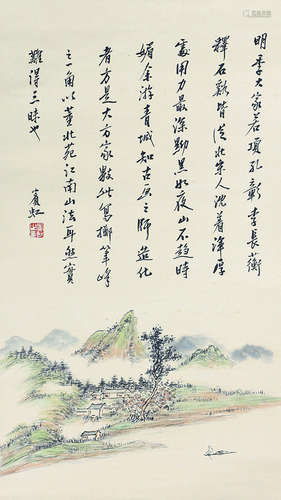 明季大家若項孔彰李長蘅
釋石谿皆從北宋人沈着渾厚
處用力最深黝黑如夜山不趨時
媚余游青城知古畫之師造化
者方是大方家數此寫擲筆峰
之一角以董北苑江南山法耳然實
難得三昧也
賓虹